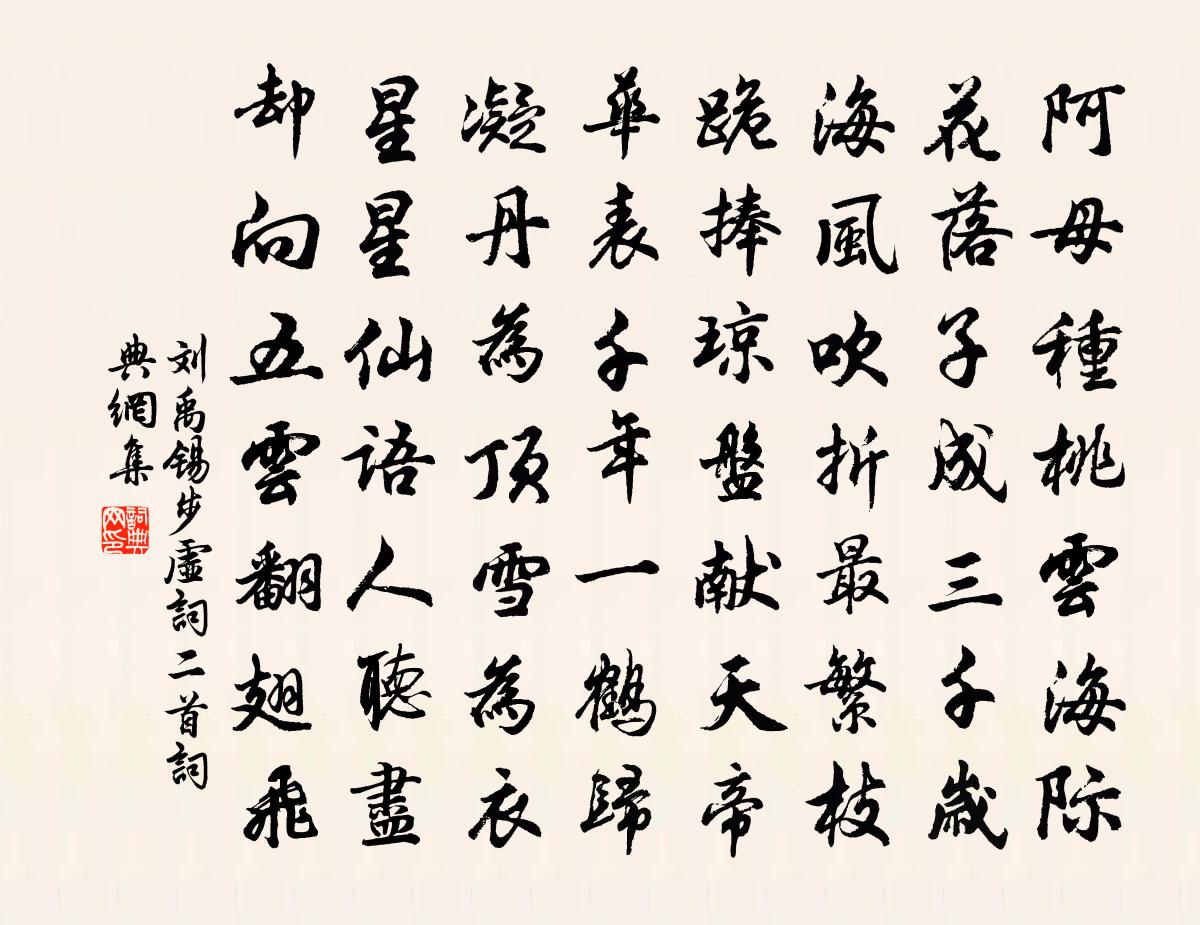 阿母種桃雲海际
花落子成三千歲
海風吹折最繁枝
跪捧琼盤献天帝
華表千年一鶴歸
凝丹為頂雪為衣
星星仙語人聽盡
却向五雲翻翅飛
刘禹锡步虛詞二首詞
典網集
詞典
网印